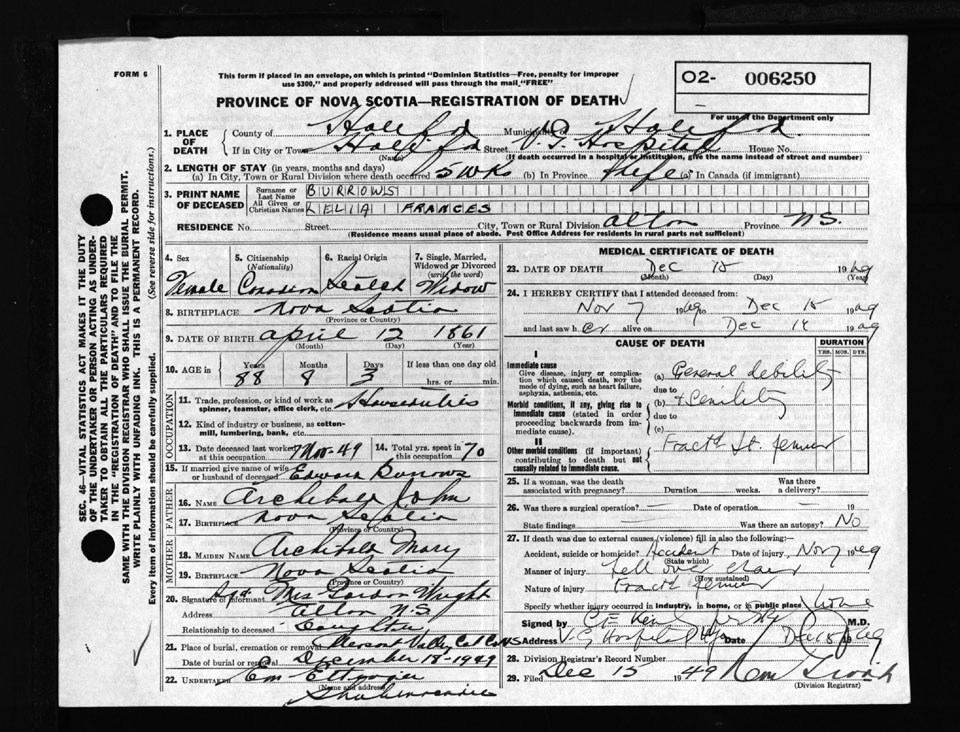 FORM 6
This form if placed in an envelope, on which is printed "Dominion Statistics—Free, penalty for improper
use $300," and properly addressed will pass through the mail "FREE"
O2- 006250
PROVINCE OF NOVA SCOTIA—REGISTRATION OF DEATH
For use of the Department only
SEC. 46—VITAL STATISTICS ACT MAKES IT THE DUTY
OF THE UNDERTAKER OR PERSON ACTING AS UNDER-
TAKER TO OBTAIN ALL THE PARTICULARS REQUIRED
IN THE "REGISTRATION OF DEATH" AND TO FILE THE
SAME WITH THE DIVISION REGISTRAR WHO SHALL ISSUE THE BURIAL PERMIT.
WRITE PLAINLY WITH UNFADING INK. THIS IS A PERMANENT RECORD.
Every item of information should be carefully supplied. (See reverse side for instructions.)
1. PLACE OF DEATH County of Halifax Municipality Halifax
If in City or Town Halifax Street V. G. Hospital House No.
(Name) (If death occurred in a hospital or institution, give the name instead of street and number)
2. LENGTH OF STAY (in years, months and days)
(a) In City, Town or Rural Division where death occurred 5 wks (b) In Province Life (c) in Canada (if immigrant)
3. PRINT NAME OF DECEASED Surname or Last Name BURROWS
All Given or Christian Names LELIA FRANCES
RESIDENCE No. Street City, Town or Rural Division Alton Province N.S.
(Residence means usual place of abode. Post Office Address for residents in rural parts not sufficient)
4. Sex 5. Citizenship (Nationality) 6. Racial Origin 7. Single, Married, Widowed or Divorced (write the word)
Female Canadian Scotch Widow
8. BIRTHPLACE Nova Scotia
(Province or Country)
9. DATE OF BIRTH April 12 1861
(Month) (Day) (Year)
10. AGE in Years Months Days If less than one day old
88 8 3 hrs. or min.
OCCUPATION
11. Trade, profession or kind of work as
spinner, teamster, office clerk, etc. Housewife
12. Kind of industry or business, as cotton-
mill, lumbering, bank, etc.
13. Date deceased last worked at this occupation Nov-49 14. Total yrs. spent in this occupation 70
15. If married give name of wife
or husband of deceased Edward Burrows
FATHER
16. NAME Archibald John
17. BIRTHPLACE Nova Scotia
(Province or Country)
MOTHER
18. MAIDEN NAME Archibald Mary
19. BIRTHPLACE Nova Scotia
(Province or Country)
20. Signature of informant Sgd. Mrs Gordon Wright
Address Alton N.S
Relationship to deceased Daughter
21. Place of burial, cremation or removal
Date of burial or removal December 18-1949
22. UNDERTAKER
(Name and address)
Shubenacadie
MEDICAL CERTIFICATE OF DEATH
23. DATE OF DEATH Dec 15 1949
(Month) (Day) (Year)
24. I HEREBY CERTIFY that I attended deceased from:
Nov 7 1949 to Dec 15 1949
and last saw her alive on Dec 14 1949
CAUSE OF DEATH DURATION
YRS. MOS. DYS.
I
Immediate cause
Give disease, injury or complica-
tion which caused death, NOT the
mode of dying, such as heart failure,
asphyxia, asthenia, etc.
(a) General debility
due to
Morbid conditions, if any, giving rise to
immediate cause (stated in order
proceeding backwards from im-
mediate cause).
(b) + Senility
due to
(c)
II
Other morbid conditions (if important)
contributing to death but not
causally related to immediate cause.
Fract'd femur
25. If a woman, was the death
associated with pregnancy? Duration weeks. Was there a delivery?
26. Was there a surgical operation? — Date of operation — 19
State findings — Was there an autopsy? No
27. If death was due to external causes (violence) fill in also the following:—
Accident, suicide or homicide? Accident Date of injury Nov 7 1949
(State which)
Manner of injury Fell over chair
(How sustained)
Nature of injury Fract'd femur
Specify whether injury occurred in industry, in home, or in public place Home
Signed by M.D.
Address V. G. Hospital Hfx Date Dec 15 1949
28. Division Registrar's Record Number
29. Filed Dec 15 1949
(Division Registrar)